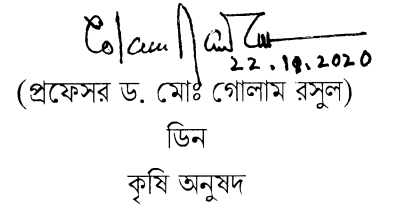 22.11.2020
(প্রফেসর ড. মোঃ গোলাম রসুল)
ডিন
কৃষি অনুষদ